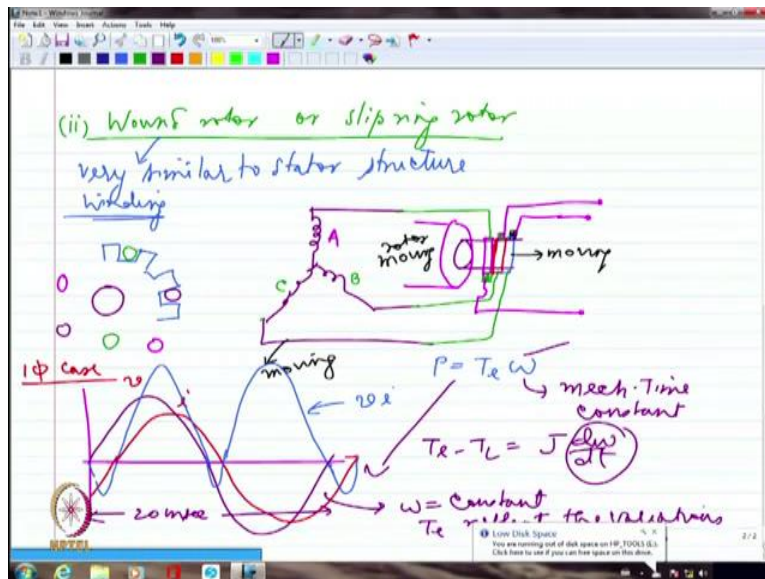 Note1 - Windows Journal
File Edit View Insert Actions Tools Help
100%
B I
(ii) Wound rotor or slip ring rotor
very similar to stator structure
winding
A
C
B
rotor
moving
→ moving
moving
1Φ case
v
i
vi
P = Te ω
→ mech. Time
constant
Te - TL = J dω/dt
20 msec
ω = constant
Te reflect the variations
NPTEL
Low Disk Space
You are running out of disk space on HP_TOOLS (E:).
Click here to see if you can free space on this drive.
2/2